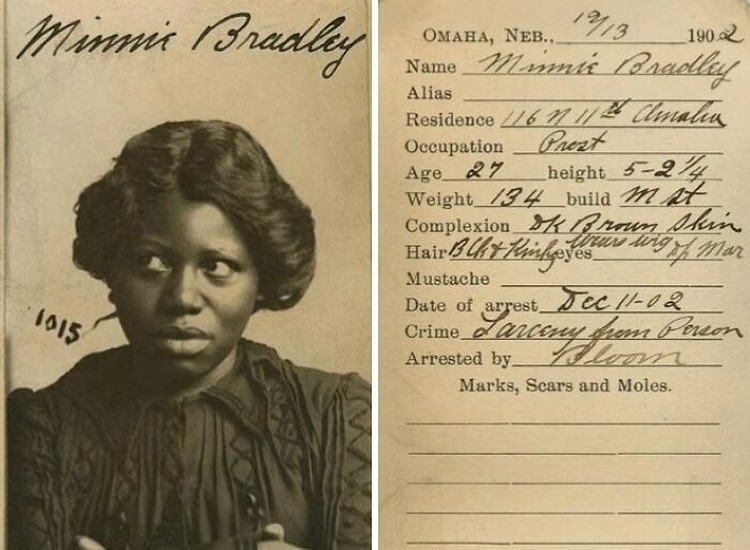 Minnie Bradley
1015
OMAHA, NEB., 12/13 1902
Name Minnie Bradley
Alias
Residence 116 N 11th Omaha
Occupation Prost
Age 27 height 5-2 1/4
Weight 134 build M St
Complexion Dk Brown Skin
Hair Blk & Kinky eyes wears wig Dp Mar
Mustache
Date of arrest Dec 11-02
Crime Larceny from Person
Arrested by Bloom
Marks, Scars and Moles.